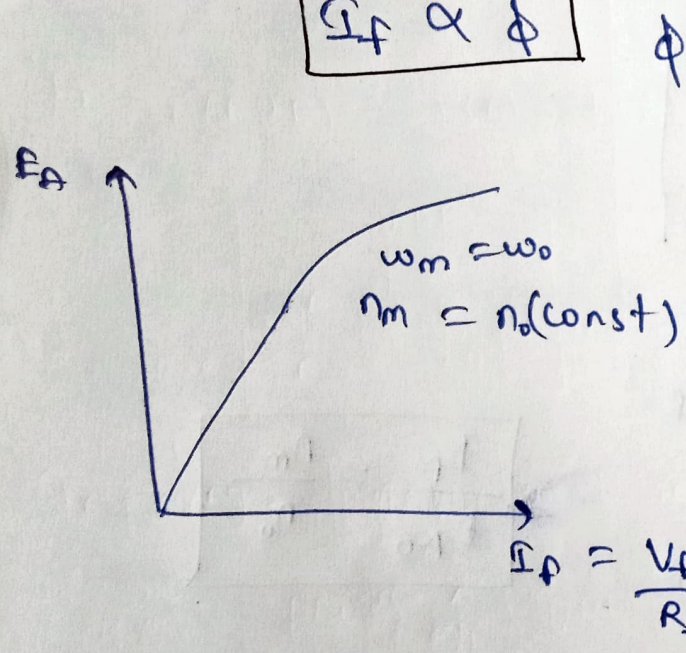 I_f ∝ ϕ
ϕ
E_A
ω_m = ω_o
n_m = n_o (const)
I_f = V_f
R